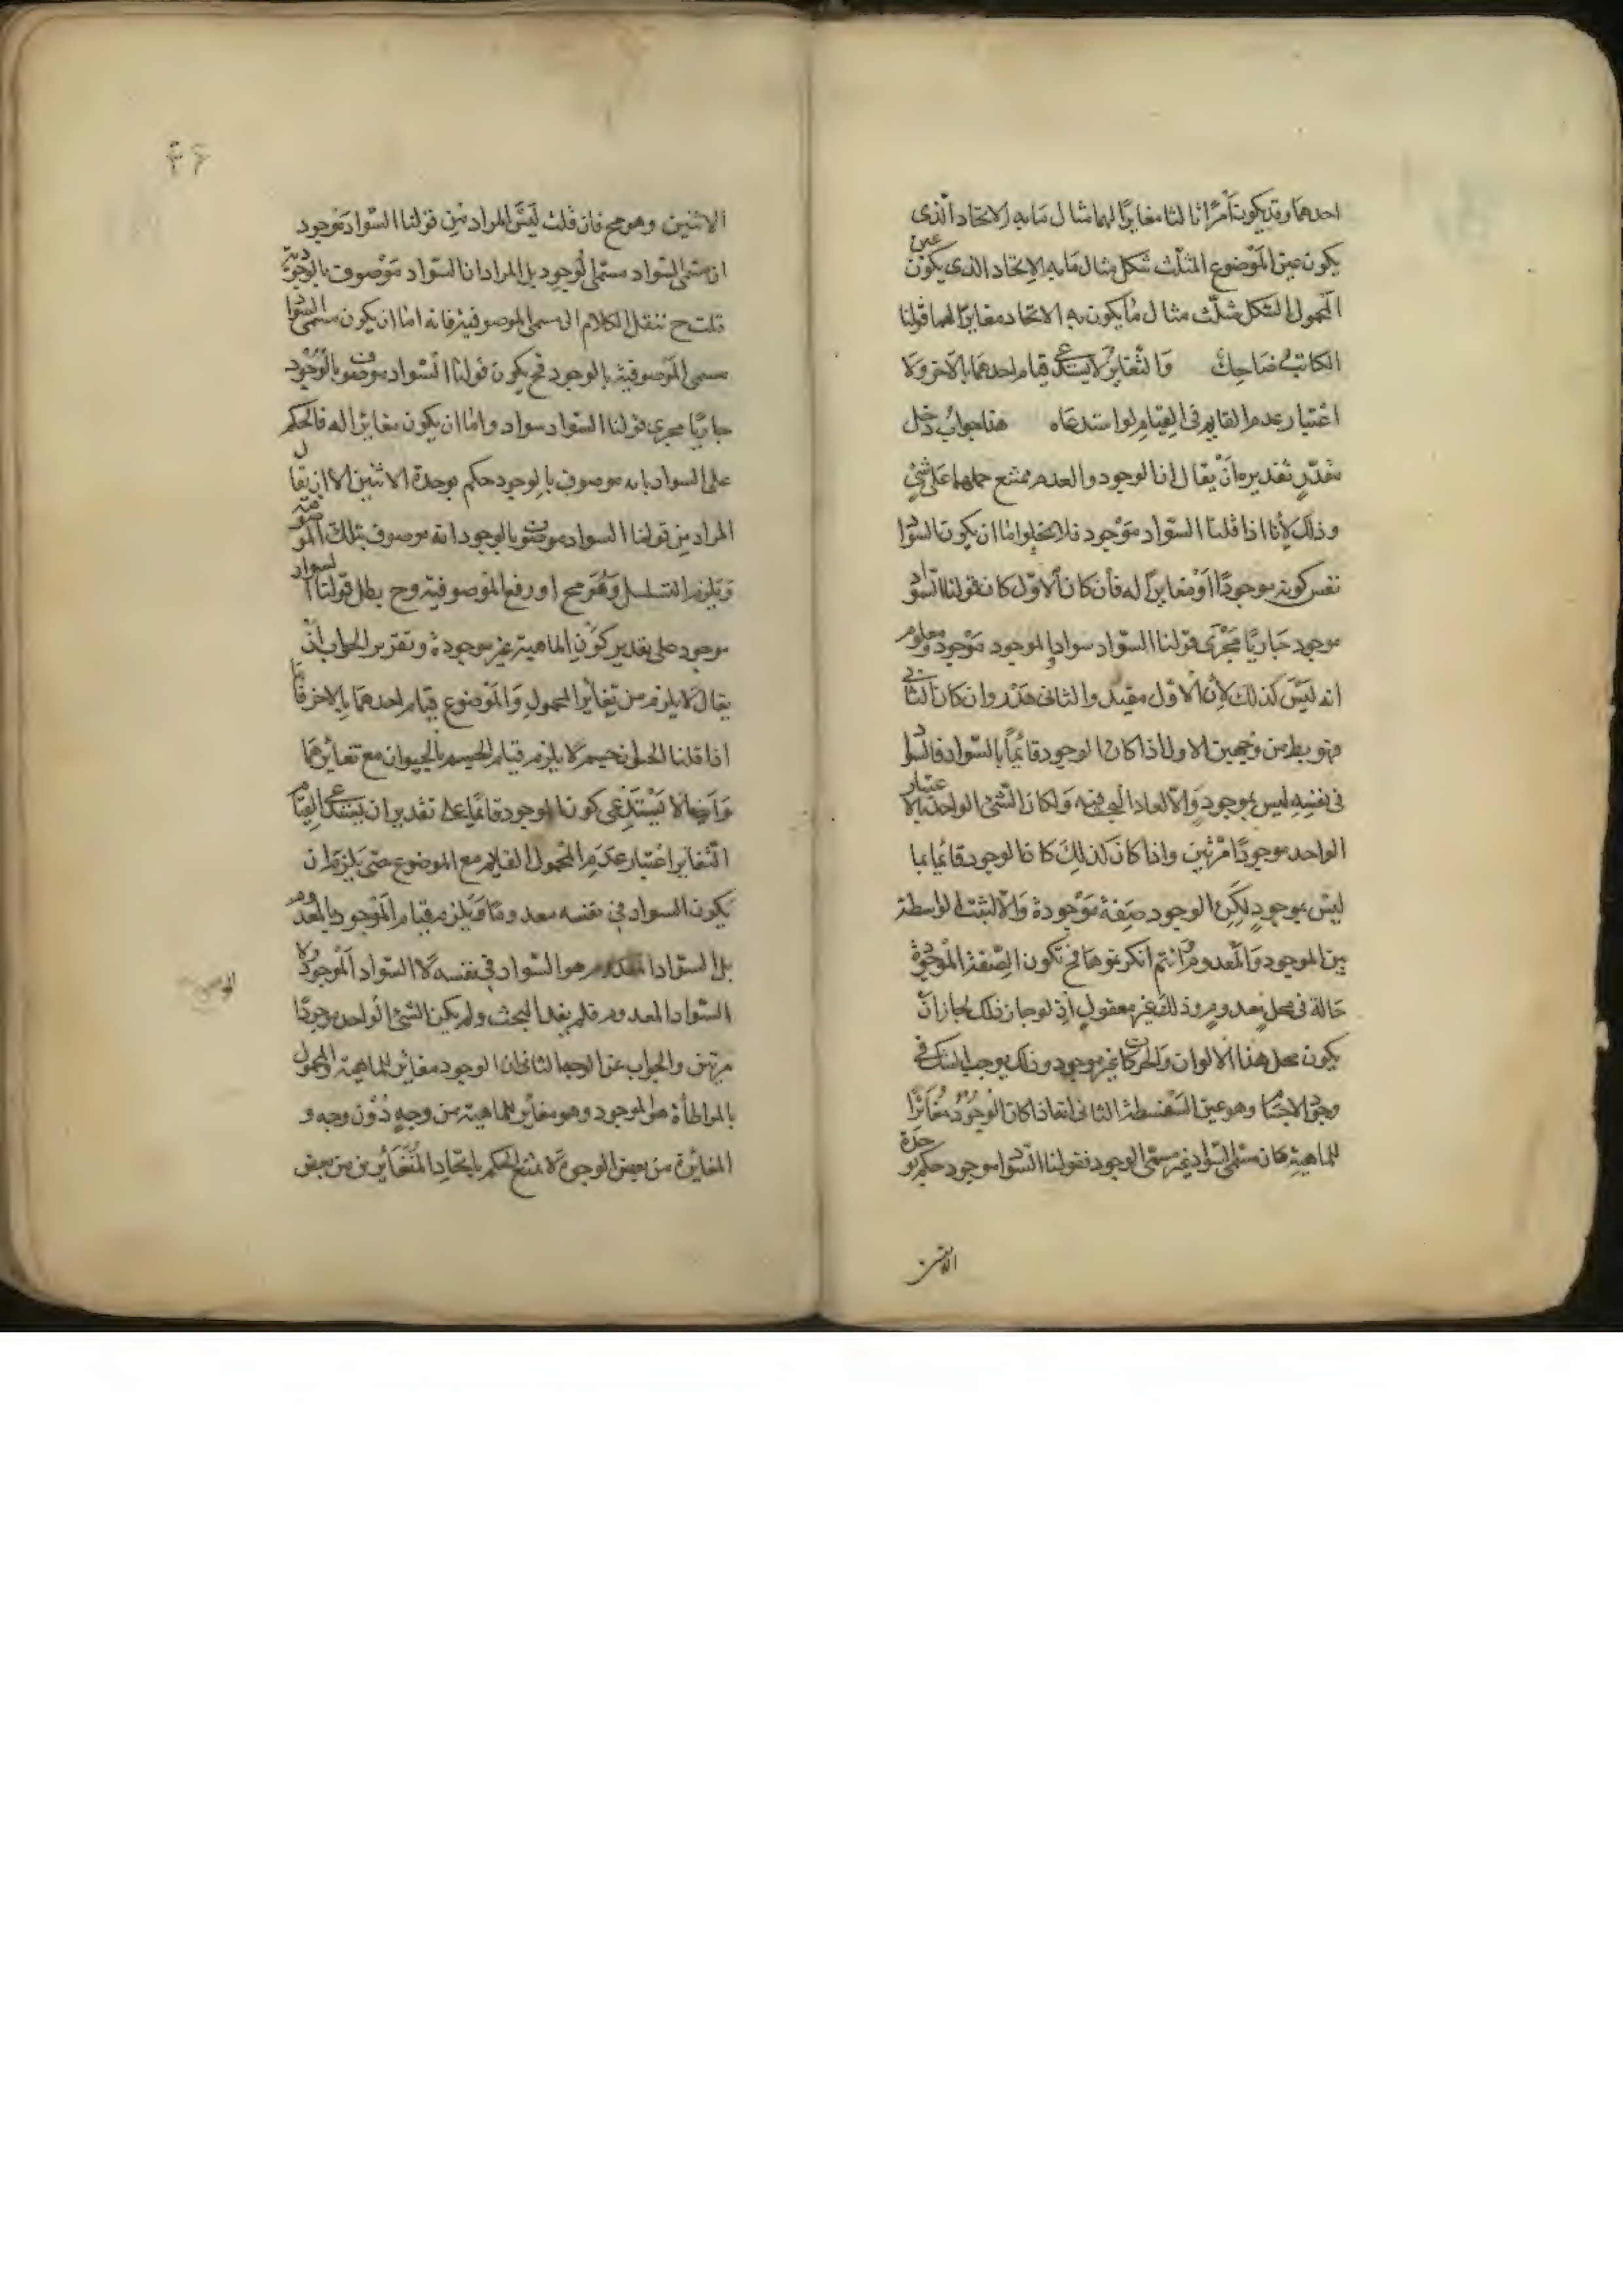 احدهما وقد يكون امرا ثالثا مغايرا لهما مثال ما به الاتحاد الذى
يكون عين الموضوع المثلث شكل مثال ما به الاتحاد الذى يكون عين
المحمول الشكل مثلث مثال ما يكون به الاتحاد مغايرا لهما قولنا
الكاتب ضاحك والتغاير لا يستدعى قيام احدهما بالاخر ولا
اعتبار عدم القايم فى القيام لو استدعاه هذا جواب دخل
مقدر تقديره ان يقال ان الوجود والعدم يمتنع حملهما على شئ
وذلك لأنا اذا قلنا السواد موجود فلا يخلوا اما ان يكون السواد
نفس كونه موجودا او مغايرا له فأن كان الاول كان قولنا السواد
موجود جاريا مجرى قولنا السواد سواد والموجود موجود ومعلوم
انه ليس كذلك لأن الاول مفيد والثانى هذر وان كان الثانى
فهو بط من وجهين الاول اذا كان الوجود قائما بالسواد فالسواد
فى نفسه ليس بموجود والا لعاد البحث فيه ولكان الشئ الواحد بالاعتبار
الواحد موجودا مرتين واذا كان كذلك كان الوجود قائما بما
ليس بموجود لكن الوجود صفة موجودة والا لثبت الواسطة
بين الموجود والمعدوم وانتم انكرتموها فح تكون الصفة الموجودة
حالة فى محل معدوم وذلك غير معقول اذ لو جاز ذلك لجاز ان
يكون محل هذا الالوان والحركات غير موجود وذلك يوجب الشك فى
وجود الاجسام وهو عين السفسطة الثانى انه اذا كان الوجود مغائرا
للماهية كان مسمى السواد غير مسمى الوجود فقولنا السواد موجود حكم بوحدة
الاثنين
الاثنين وهو مح فان قلت ليس المراد من قولنا السواد موجود
ان مسمى السواد مسمى الوجود بل المراد ان السواد موصوف بالوجودية
قلت ح ننقل الكلام الى مسمى الموصوفية فانه اما ان يكون مسمى السواد
مسمى الموصوفية بالوجود فح يكون قولنا السواد موصوف بالوجود
جاريا مجرى قولنا السواد سواد واما ان يكون مغائرا له فالحكم
على السواد بانه موصوف بالوجود حكم بوحدة الاثنين الا ان يقال
المراد من قولنا السواد موصوف بالوجود انه موصوف بتلك الموصوفية
ويلزم التسلسل وهو مح او رفع الموصوفية وح بطل قولنا السواد
موجود على تقدير كون الماهية غير موجودة وتقرير الجواب ان
يقال لا يلزم من تغائر المحمول والموضوع قيام احدهما بالاخر فانا
اذا قلنا الحيوان جسم لا يلزم قيام الجسم بالحيوان مع تغائرهما
وايضا لا يستدعى كون الوجود قائما على تقدير ان يستدعى القيام
التغاير اعتبار عدم المحمول القايم مع الموضوع حتى يلزم ان
يكون السواد فى نفسه معدوما ويلزم قيام الموجود بالمعدوم
بل السواد المعدوم هو السواد فى نفسه لا السواد الموجود ولا
السواد المعدوم فلم يعد البحث ولم يكن الشئ الواحد موجودا
مرتين والجواب عن الوجه الثانى ان الوجود مغائر للماهية والمحمول
بالمواطأة هو الموجود وهو مغائر للماهية من وجه دون وجه و
المغائرة من بعض الوجوه لا تمنع الحكم باتحاد المتغائرين من بعض